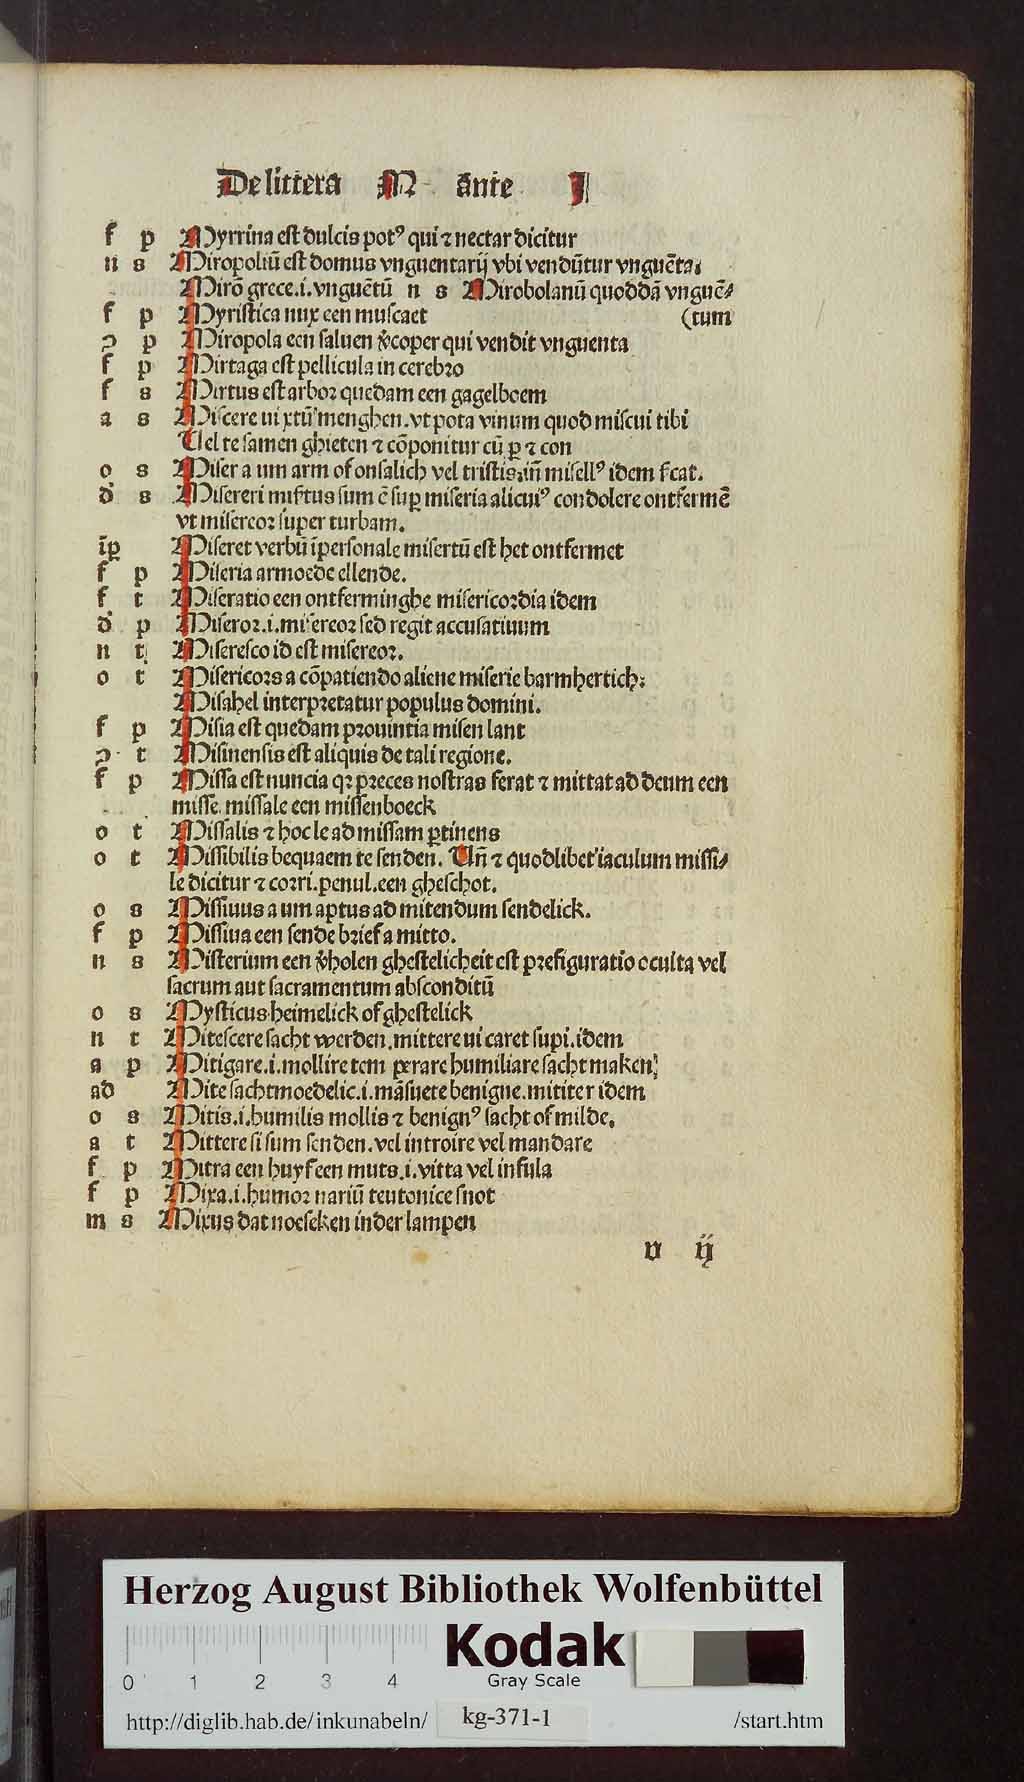 De littera M ante J
f p Myrrina est dulcis potꝰ qui ⁊ nectar dicitur
n s Miropoliū est domus vnguentarij vbi vendūtur vnguēta.
Mirō grece.i.vnguētū n s Mirobolanū quoddā vnguē⸗
f p Myristica nux een muscaet (tum
ↄ p Miropola een saluen v̄coper qui vendit vnguenta
f p Mirtaga est pellicula in cerebro
f s Mirtus est arbor quedam een gagelboem
a s Miscere ui xtū menghen.vt pota vinum quod miscui tibi
Uel te samen ghieten ⁊ cōponitur cū ꝑ ⁊ con
o s Miser a um arm of onsalich vel tristis.in̄ misellꝰ idem fcat.
d' s Misereri misertus sum ē suꝑ miseria alicuiꝰ condolere ontfermē
vt misereor super turbam.
īp Miseret verbū īpersonale misertū est het ontfermet
f p Miseria armoede ellende.
f t Miseratio een ontferminghe misericordia idem
d' p Miseror.i.misereor sed regit accusatiuum
n t Miseresco id est misereor.
o t Misericors a cōpatiendo aliene miserie barmhertich:
Misahel interpretatur populus domini.
f p Misia est quedam prouintia misen lant
ↄ t Misinensis est aliquis de tali regione.
f p Missa est nuncia qꝛ preces nostras ferat ⁊ mittat ad deum een
misse. missale een missenboeck
o t Missalis ⁊ hoc le ad missam ꝑtinens
o t Missibilis bequaem te senden. Un̄ ⁊ quodlibet iaculum missi⸗
le dicitur ⁊ corri.penul.een gheschot.
o s Missiuus a um aptus ad mitendum sendelick.
f p Missiua een sende brief a mitto.
n s Misterium een v̄holen ghestelicheit est prefiguratio occulta vel
sacrum aut sacramentum absconditū
o s Mysticus heimelick of ghestelick
n t Mitescere sacht werden.mittere ui caret supi.idem
a p Mitigare.i.mollire tem perare humiliare sacht maken
ad Mite sachtmoedelic.i.māsuete benigne.mititer idem
o s Mitis.i.humilis mollis ⁊ benignꝰ sacht of milde.
a t Mittere si sum senden.vel introire vel mandare
f p Mitra een huyf een muts.i.vitta vel insula
f p Mixa.i.humor nariū teutonice snot
m s Mixus dat noeseken in der lampen
v ij
Herzog August Bibliothek Wolfenbüttel
Kodak
Gray Scale
0 1 2 3 4
http://diglib.hab.de/inkunabeln/ kg-371-1 /start.htm